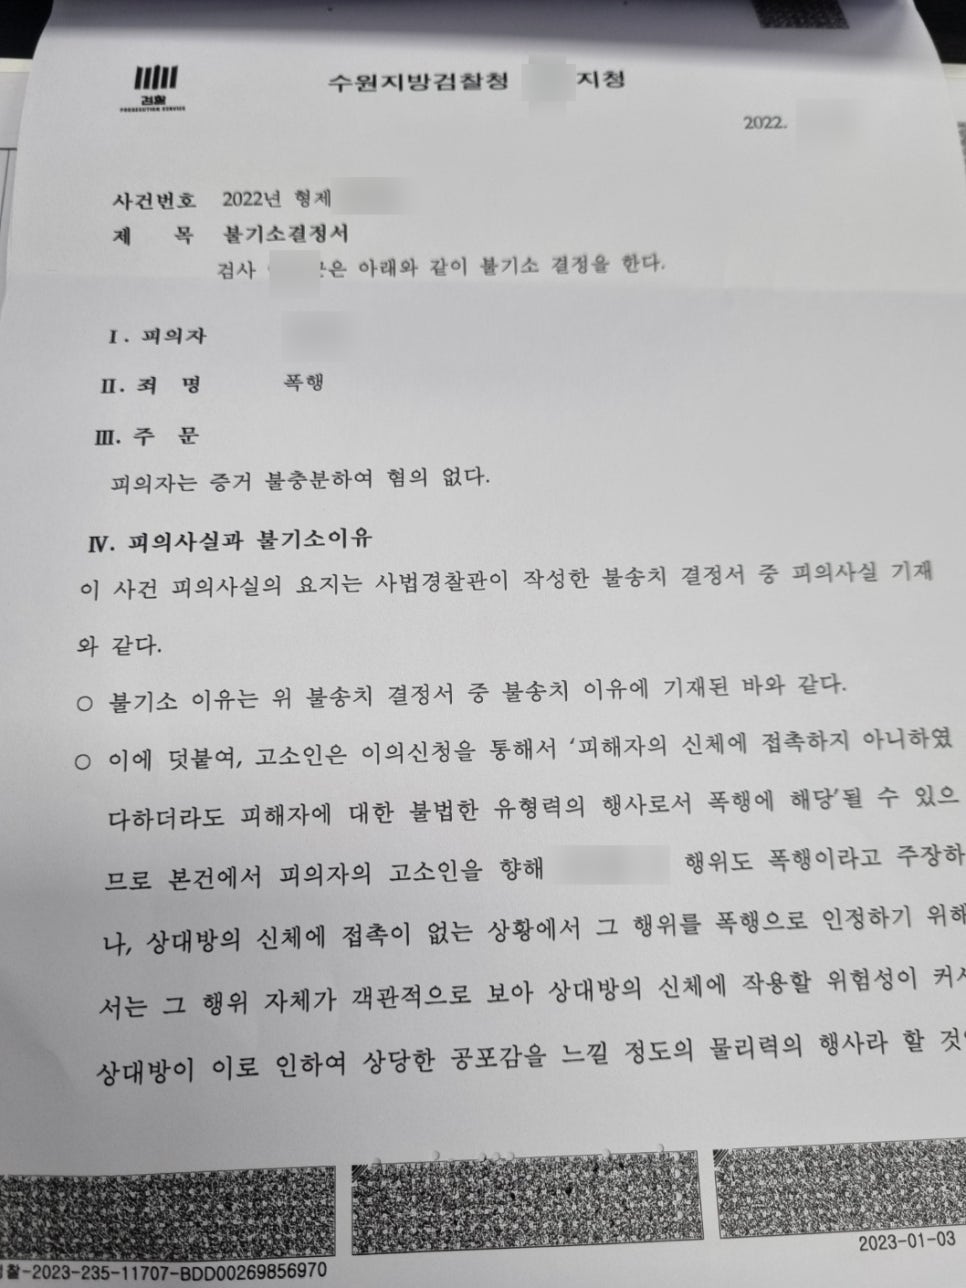 검찰
PROSECUTION SERVICE
수원지방검찰청 지청
2022.
사건번호 2022년 형제
제 목 불기소결정서
검사 은 아래와 같이 불기소 결정을 한다.
I. 피의자
II. 죄 명 폭행
III. 주 문
피의자는 증거 불충분하여 혐의 없다.
IV. 피의사실과 불기소이유
이 사건 피의사실의 요지는 사법경찰관이 작성한 불송치 결정서 중 피의사실 기재
와 같다.
○ 불기소 이유는 위 불송치 결정서 중 불송치 이유에 기재된 바와 같다.
○ 이에 덧붙여, 고소인은 이의신청을 통해서 ‘피해자의 신체에 접촉하지 아니하였
다하더라도 피해자에 대한 불법한 유형력의 행사로서 폭행에 해당’될 수 있으
므로 본건에서 피의자의 고소인을 향해 행위도 폭행이라고 주장하
나, 상대방의 신체에 접촉이 없는 상황에서 그 행위를 폭행으로 인정하기 위해
서는 그 행위 자체가 객관적으로 보아 상대방의 신체에 작용할 위험성이 커서
상대방이 이로 인하여 상당한 공포감을 느낄 정도의 물리력의 행사라 할 것
찰-2023-235-11707-BDD00269856970
2023-01-03